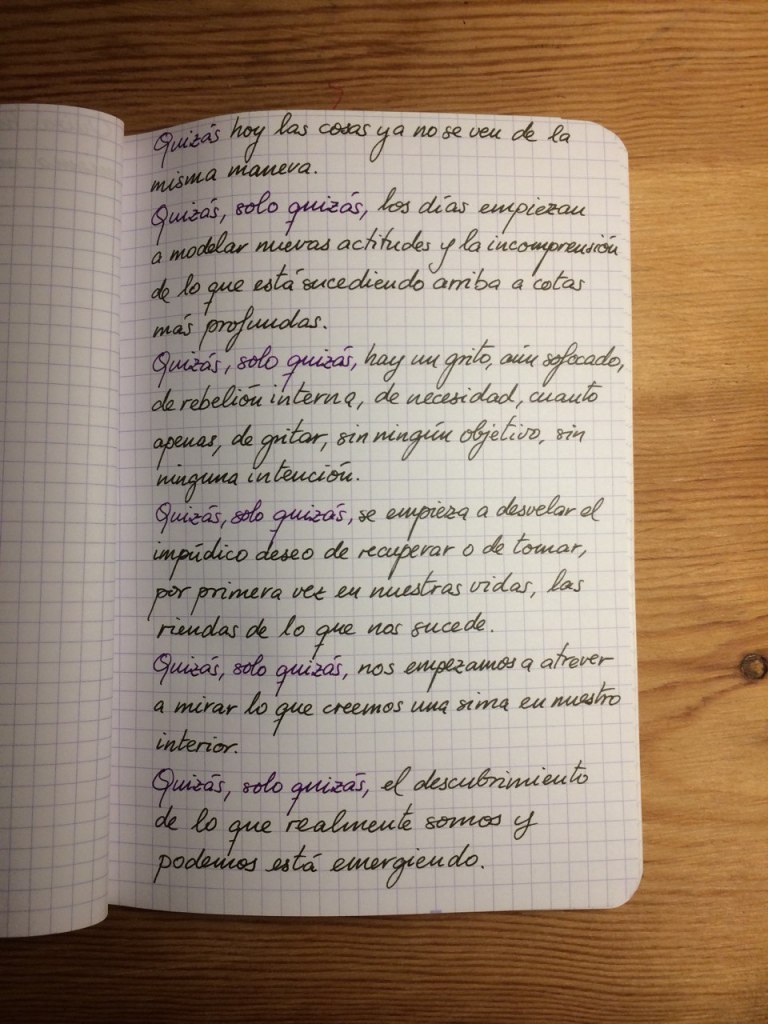 Quizás hoy las cosas ya no se ven de la
misma manera.
Quizás, solo quizás, los días empiezan
a modelar nuevas actitudes y la incomprensión
de lo que está sucediendo arriba a cotas
más profundas.
Quizás, solo quizás, hay un grito, aún sofocado,
de rebelión interna, de necesidad, cuanto
apenas, de gritar, sin ningún objetivo, sin
ninguna intención.
Quizás, solo quizás, se empieza a desvelar el
impúdico deseo de recuperar o de tomar,
por primera vez en nuestras vidas, las
riendas de lo que nos sucede.
Quizás, solo quizás, nos empezamos a atrever
a mirar lo que creemos una sima en nuestro
interior.
Quizás, solo quizás, el descubrimiento
de lo que realmente somos y
podemos está emergiendo.